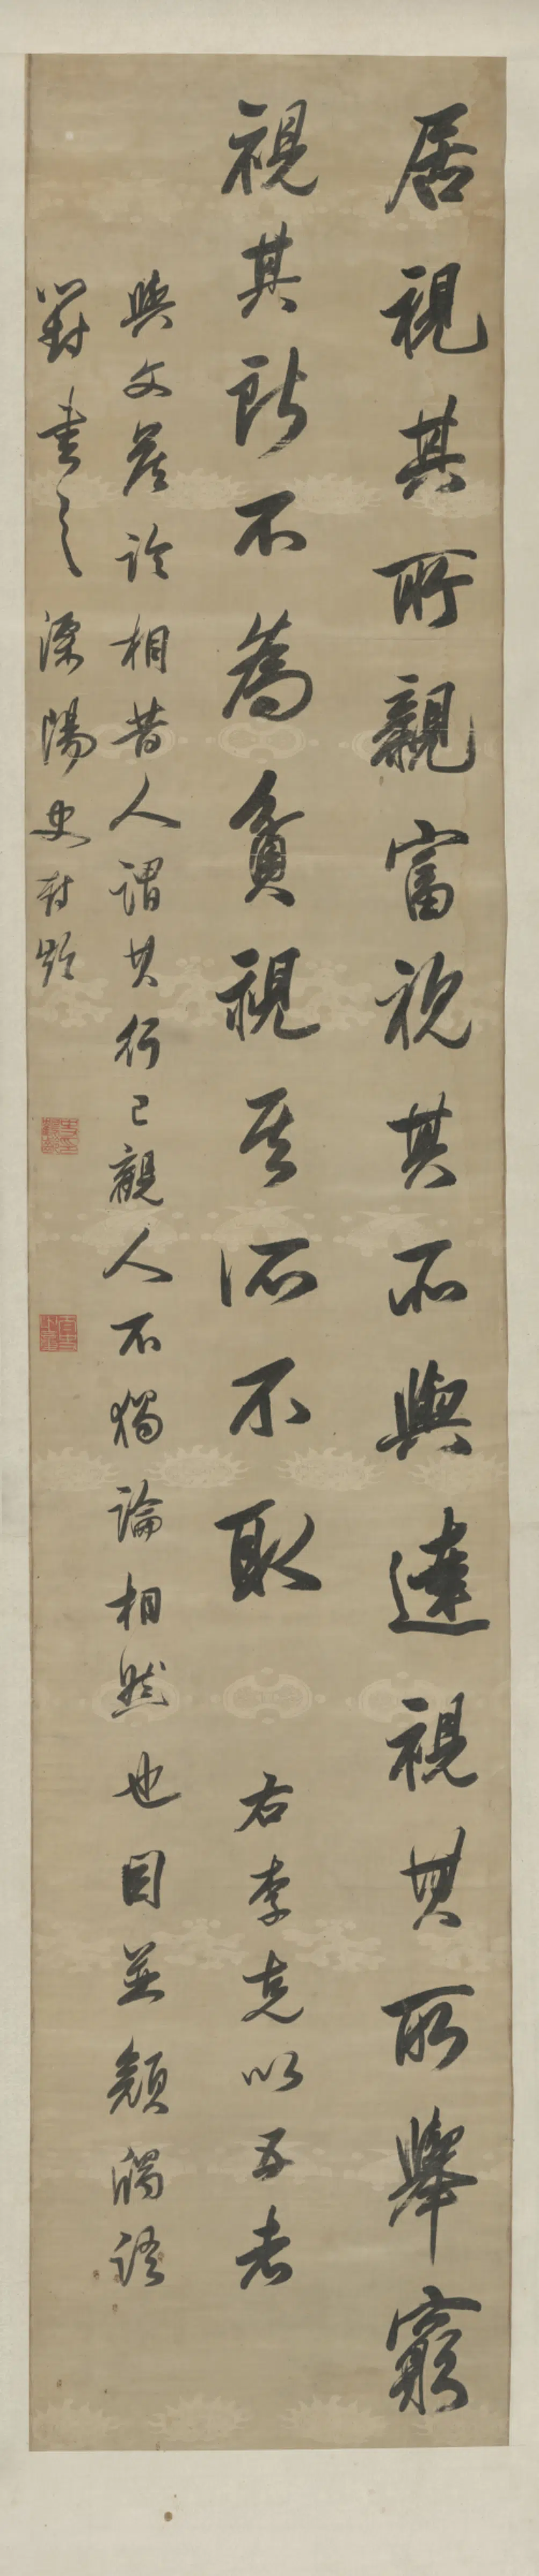 居視其所親富視其所與達視其所舉窮
視其所不為貧視其所不取 右李克以五者
與文侯論相昔人謂其行己觀人不獨論相然也因並顏
對書之溧陽史